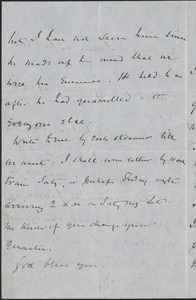 but I have not seen him since
he made up his mind that we
were his Enemies. He held to us
after he had quarrelled with
Everyone else.
Write to me by each steamer till
we meet. I shall come either by
train Saty, or perhaps Friday night
arriving 2 on Saty. Let
me know if you change your
Quarters.
God bless you